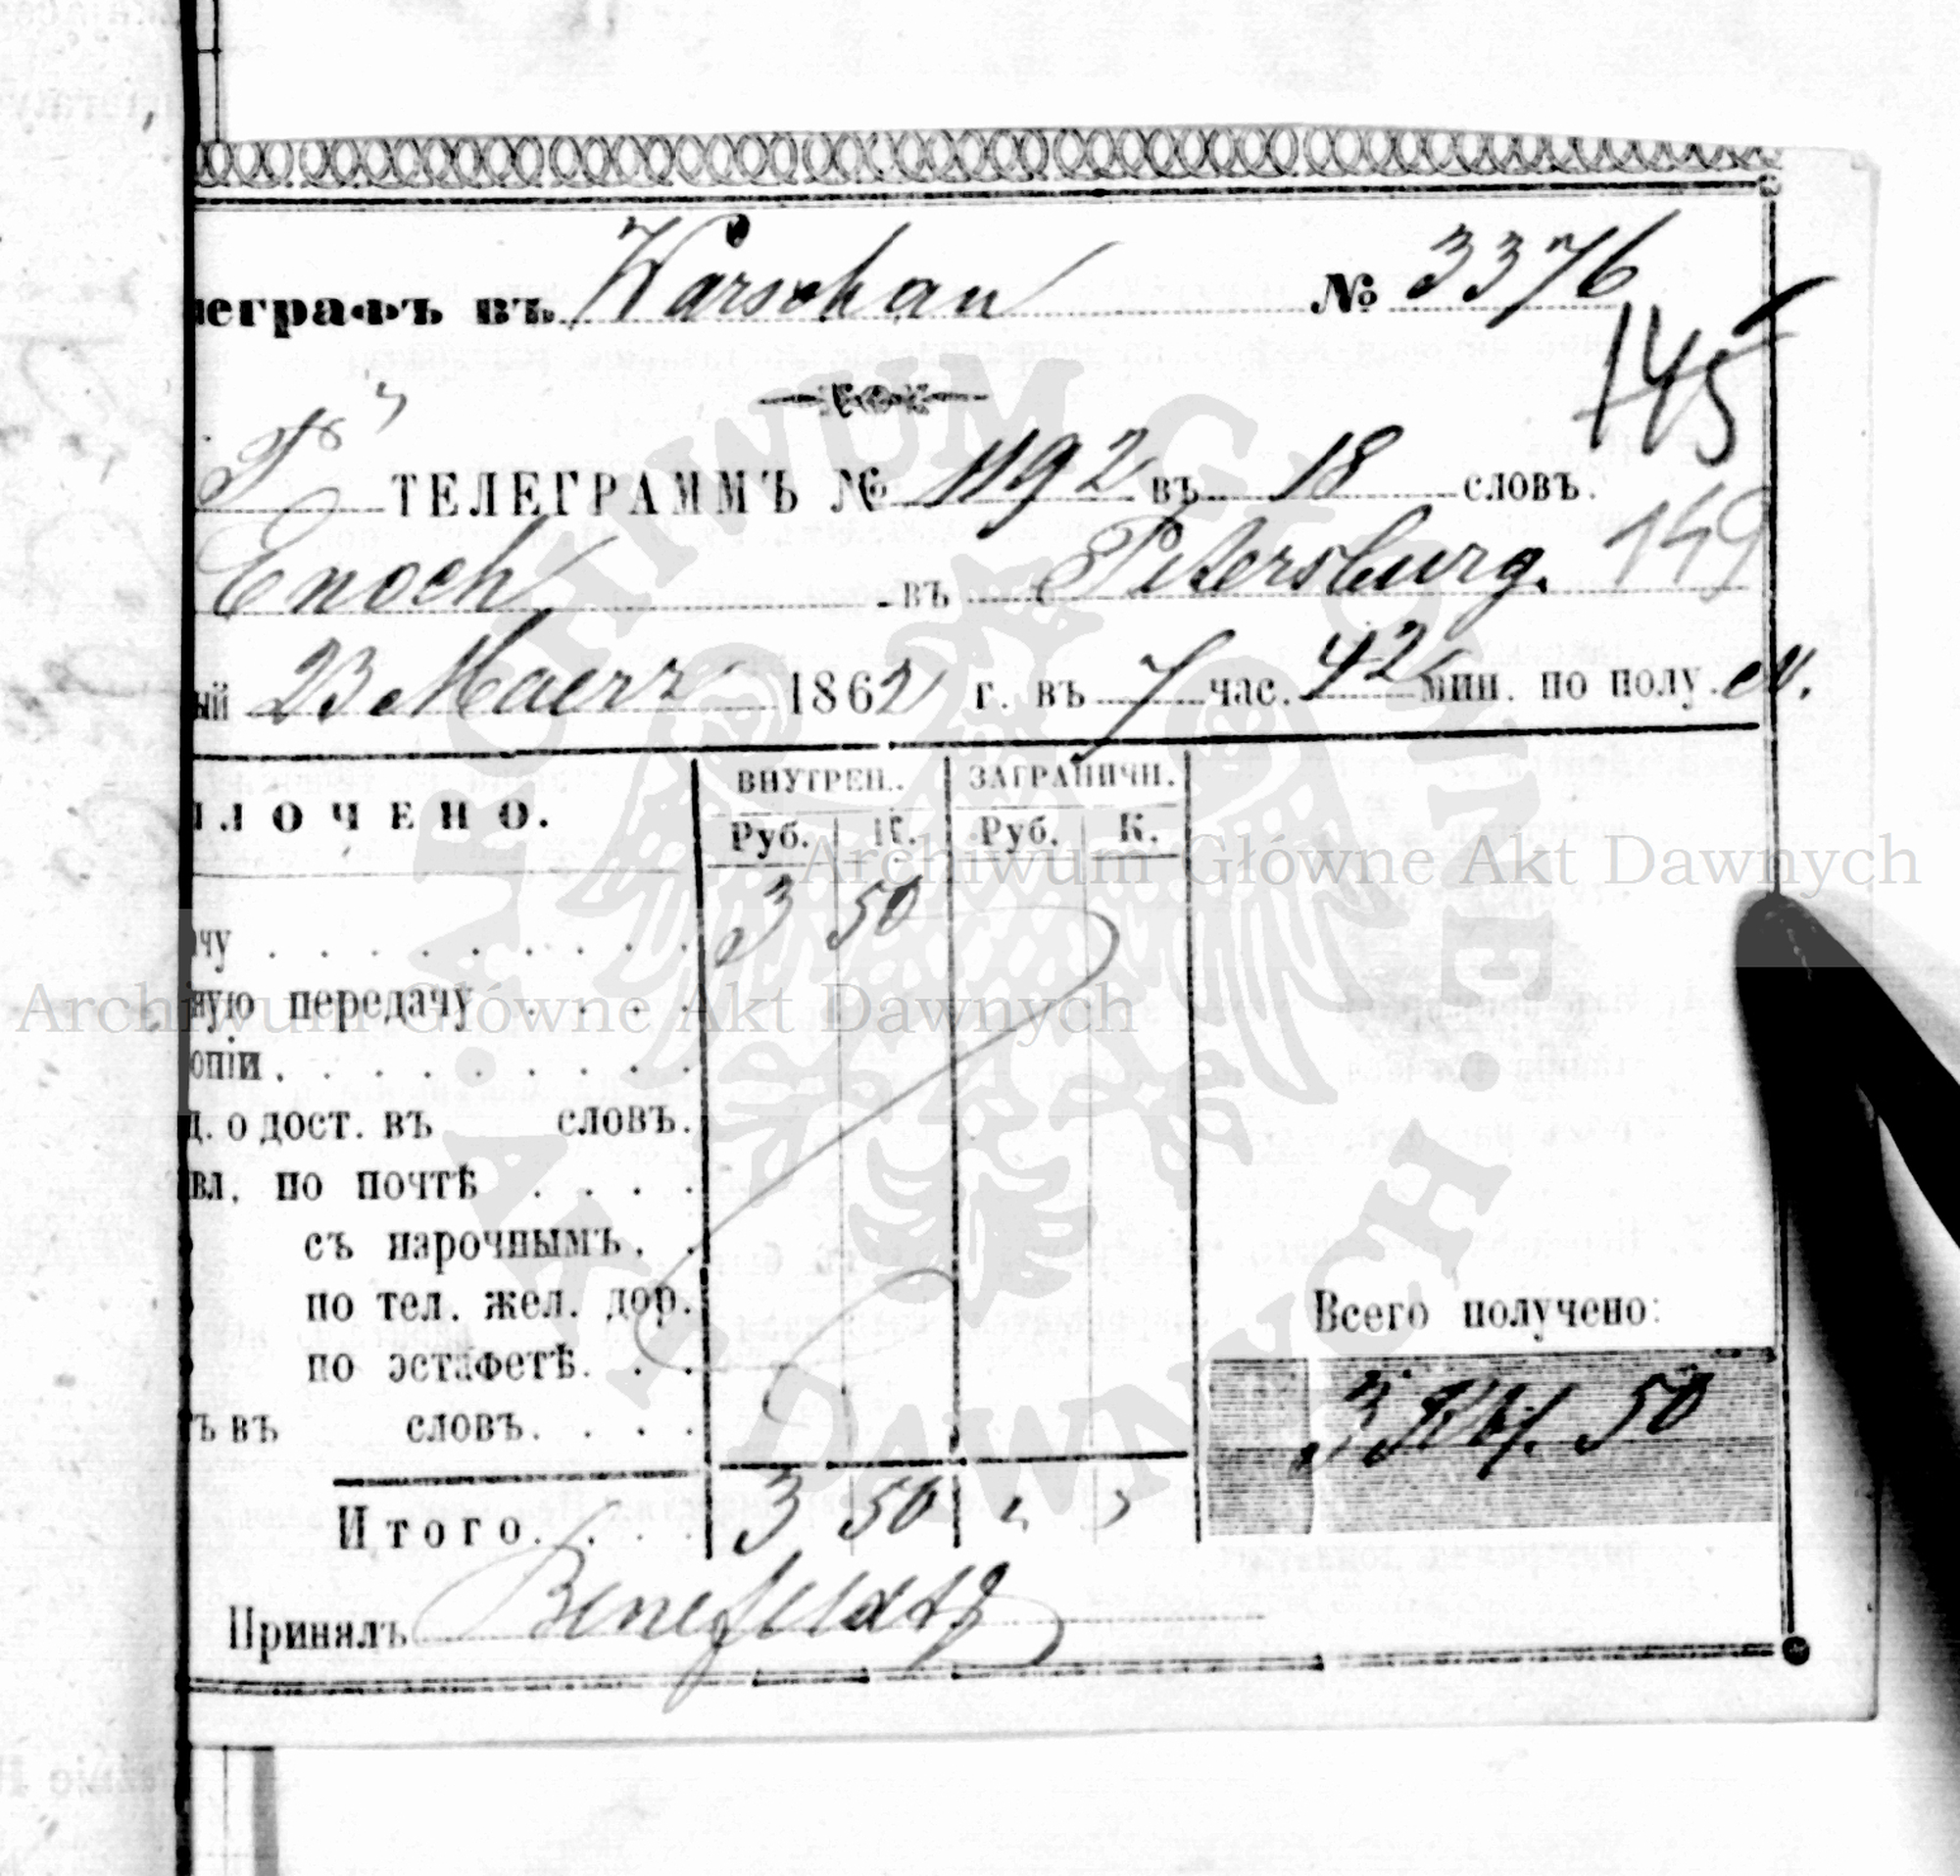 леграфъ въ Warschau № 3376
145
ТЕЛЕГРАММЪ № 1192 въ 18 словъ.
149
Enoch въ Petersburg.
ый 23 Maerz 1862 г. въ 7 час. 42 мин. по полу. N.
ЛОЧЕНО.
ВНУТРЕН. ЗАГРАНИЧН.
Руб. К. Руб. К.
ачу . . . . . . . . . 3 50
ную передачу . . . .
опіи . . . . . . . . .
д. о дост. въ словъ.
вл. по почтѣ . . . .
съ нарочнымъ. .
по тел. жел. дор.
по эстафетѣ. . .
ъ въ словъ. . . .
Всего получено:
3 Rbl. 50
Итого. . . . 3 50 " "
Принялъ
Archiwum Główne Akt Dawnych
Archiwum Główne Akt Dawnych
ARCHIWUM GŁÓWNE AKT DAWNYCH